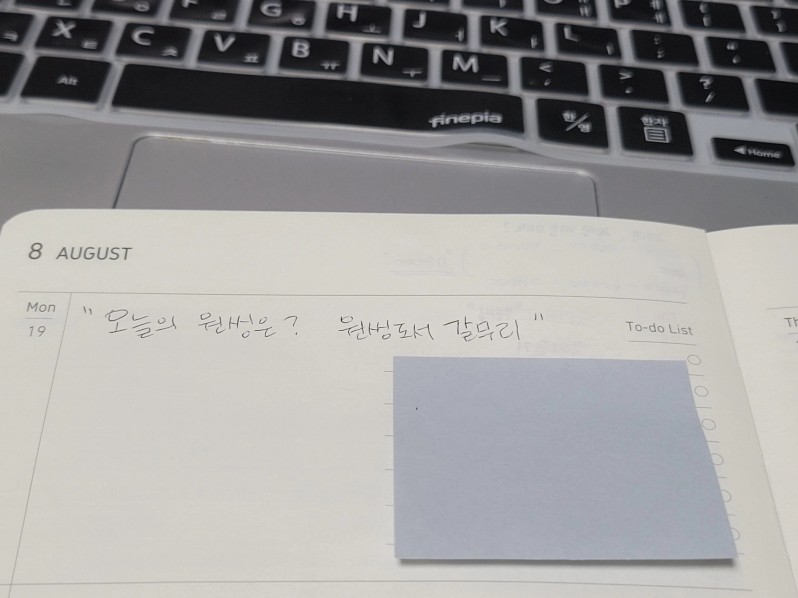 G ㅎ H ㅗ J ㅓ K ㅏ L ㅣ
X ㅌ C ㅊ V ㅍ B ㅠ N ㅜ M ㅡ < , > . ? /
Alt finepia 한/영 한자 ◀Home
8 AUGUST
Mon
19
" 오늘의 원씽은? 원씽도서 갈무리 "
To-do List